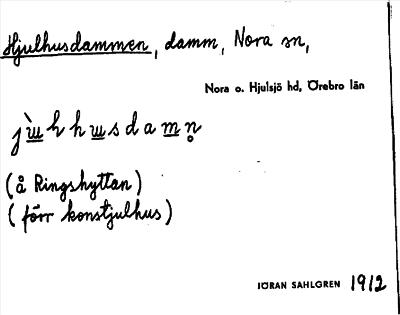 Hjulhusdammen, damm, Nora sn,
Nora o. Hjulsjö hd, Örebro län
(å Ringshyttan)
(förr konstjulhus)
JÖRAN SAHLGREN 1912